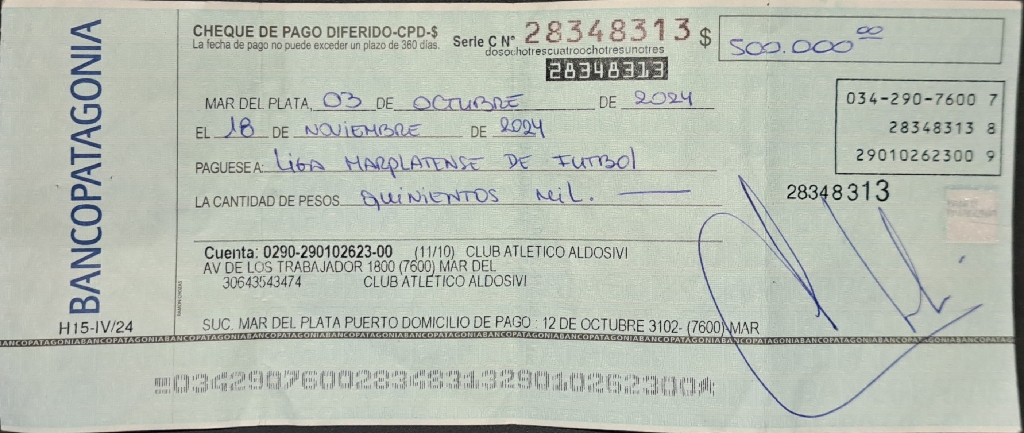 BANCOPATAGONIA
H15-IV/24
CHEQUE DE PAGO DIFERIDO-CPD-$
La fecha de pago no puede exceder un plazo de 360 días.
Serie C N° 28348313 $ 500.000⁰⁰
dosochotrescuatroochotresunotres
28348313
MAR DEL PLATA, 03 DE OCTUBRE DE 2024
EL 18 DE NOVIEMBRE DE 2024
PAGUESE A: LIGA MARPLATENSE DE FUTBOL
LA CANTIDAD DE PESOS QUINIENTOS MIL.
034-290-7600 7
28348313 8
29010262300 9
28348313
Cuenta: 0290-290102623-00 (11/10) CLUB ATLETICO ALDOSIVI
AV DE LOS TRABAJADOR 1800 (7600) MAR DEL
30643543474 CLUB ATLETICO ALDOSIVI
SUC. MAR DEL PLATA PUERTO DOMICILIO DE PAGO : 12 DE OCTUBRE 3102- (7600) MAR
BANCOPATAGONIABANCOPATAGONIABANCOPATAGONIABANCOPATAGONIABANCOPATAGONIABANCOPATAGONIA
034290760028348313290102623004